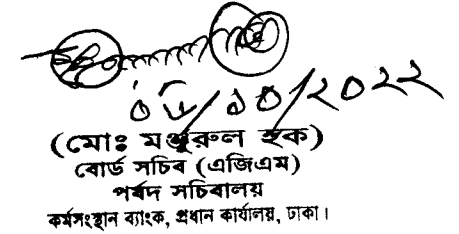 ০৬/১০/২০২২
(মোঃ মঞ্জুরুল হক)
বোর্ড সচিব (এজিএম)
পর্ষদ সচিবালয়
কর্মসংস্থান ব্যাংক, প্রধান কার্যালয়, ঢাকা।